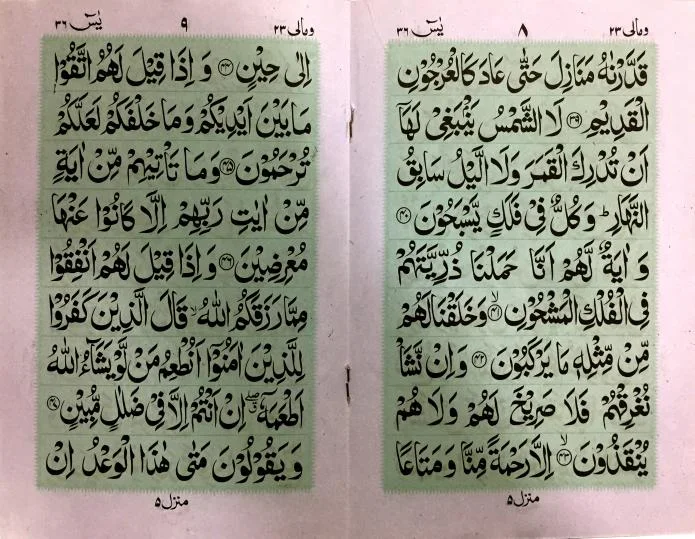 ومالی ۲۳
۸
یٰسٓ ۳۶
قَدَّرْنٰهُ مَنَازِلَ حَتّٰی عَادَ كَالْعُرْجُوْنِ
الْقَدِیْمِ ﴿۳۹﴾ لَا الشَّمْسُ یَنْۢبَغِیْ لَهَاۤ
اَنْ تُدْرِكَ الْقَمَرَ وَلَا الَّیْلُ سَابِقُ
النَّهَارِ ؕ وَ كُلٌّ فِیْ فَلَكٍ یَّسْبَحُوْنَ ﴿۴۰﴾
وَ اٰیَةٌ لَّهُمْ اَنَّا حَمَلْنَا ذُرِّیَّتَهُمْ
فِی الْفُلْكِ الْمَشْحُوْنِ ﴿۴۱﴾ۙ وَخَلَقْنَا لَهُمْ
مِّنْ مِّثْلِهٖ مَا یَرْكَبُوْنَ ﴿۴۲﴾ وَ اِنْ نَّشَاْ
نُغْرِقْهُمْ فَلَا صَرِیْخَ لَهُمْ وَ لَا هُمْ
یُنْقَذُوْنَ ﴿۴۳﴾ۙ اِلَّا رَحْمَةً مِّنَّا وَ مَتَاعًا
منزل ۵
ومالی ۲۳
۹
یٰسٓ ۳۶
اِلٰی حِیْنٍ ﴿۴۴﴾ وَ اِذَا قِیْلَ لَهُمُ اتَّقُوْا
مَا بَیْنَ اَیْدِیْكُمْ وَ مَا خَلْفَكُمْ لَعَلَّكُمْ
تُرْحَمُوْنَ ﴿۴۵﴾ وَ مَا تَاْتِیْهِمْ مِّنْ اٰیَةٍ
مِّنْ اٰیٰتِ رَبِّهِمْ اِلَّا كَانُوْا عَنْهَا
مُعْرِضِیْنَ ﴿۴۶﴾ وَ اِذَا قِیْلَ لَهُمْ اَنْفِقُوْا
مِمَّا رَزَقَكُمُ اللّٰهُ ۙ قَالَ الَّذِیْنَ كَفَرُوْا
لِلَّذِیْنَ اٰمَنُوْۤا اَنُطْعِمُ مَنْ لَّوْ یَشَآءُ اللّٰهُ
اَطْعَمَهٗۤ ۖ اِنْ اَنْتُمْ اِلَّا فِیْ ضَلٰلٍ مُّبِیْنٍ ﴿۴۷﴾
وَ یَقُوْلُوْنَ مَتٰی هٰذَا الْوَعْدُ اِنْ
منزل ۵